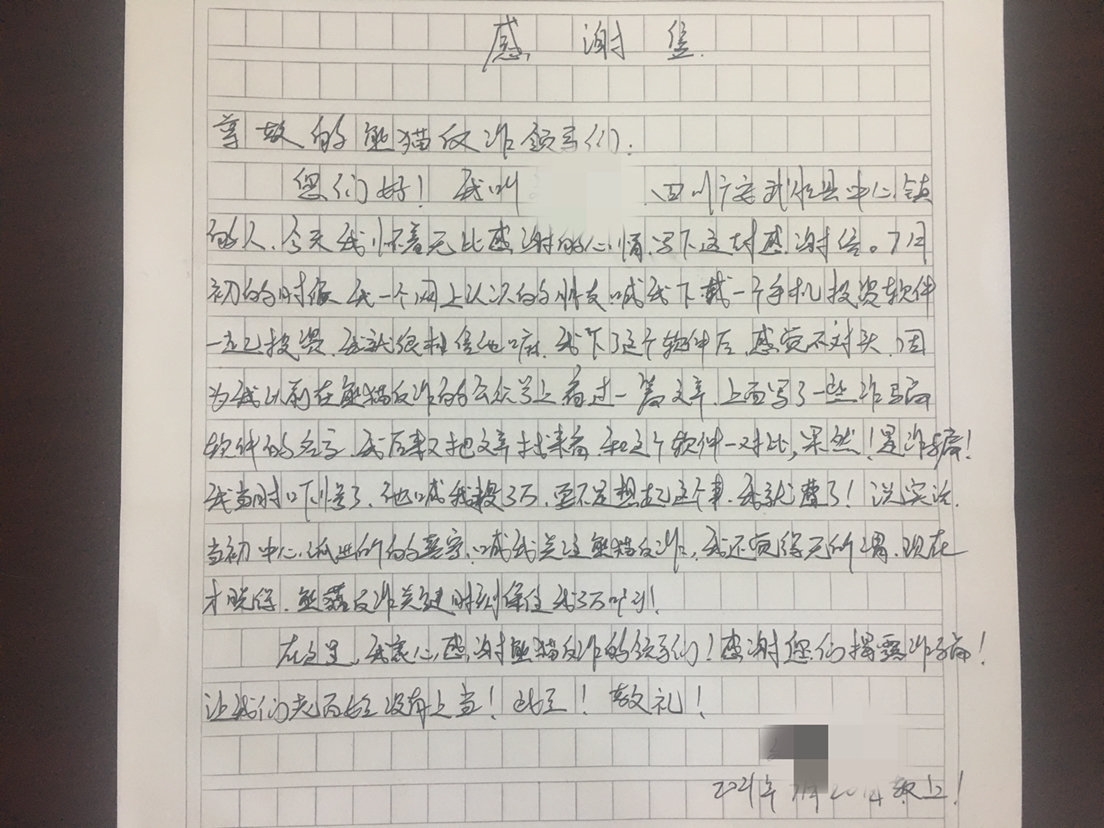 感谢信
尊敬的熊猫反诈领导们:
您们好!我叫 、四川广安武胜县中心镇
的人,今天我怀着无比感谢的心情写下这封感谢信。7月
初的时候,我一个网上认识的朋友喊我下载一个手机投资软件
一起投资,我就很相信他嘛,我下了这个软件后,感觉不对头,因
为我以前在熊猫反诈的公众号上看过一篇文章,上面写了一些诈骗
软件的名字,我后来又把文章找来看,和这个软件一对比,果然!是诈骗!
我当时吓惨了,他喊我投3万,要不是想起这个事,我就遭了!说实话,
当初中心派出所的警官,喊我关注熊猫反诈,我还觉得无所谓,现在
才晓得,熊猫反诈关键时刻保住我3万块!
在这里,我衷心感谢熊猫反诈的领导们!感谢您们揭露诈骗!
让我们老百姓没有上当!此至!敬礼!
2021年7月20日 敬上!